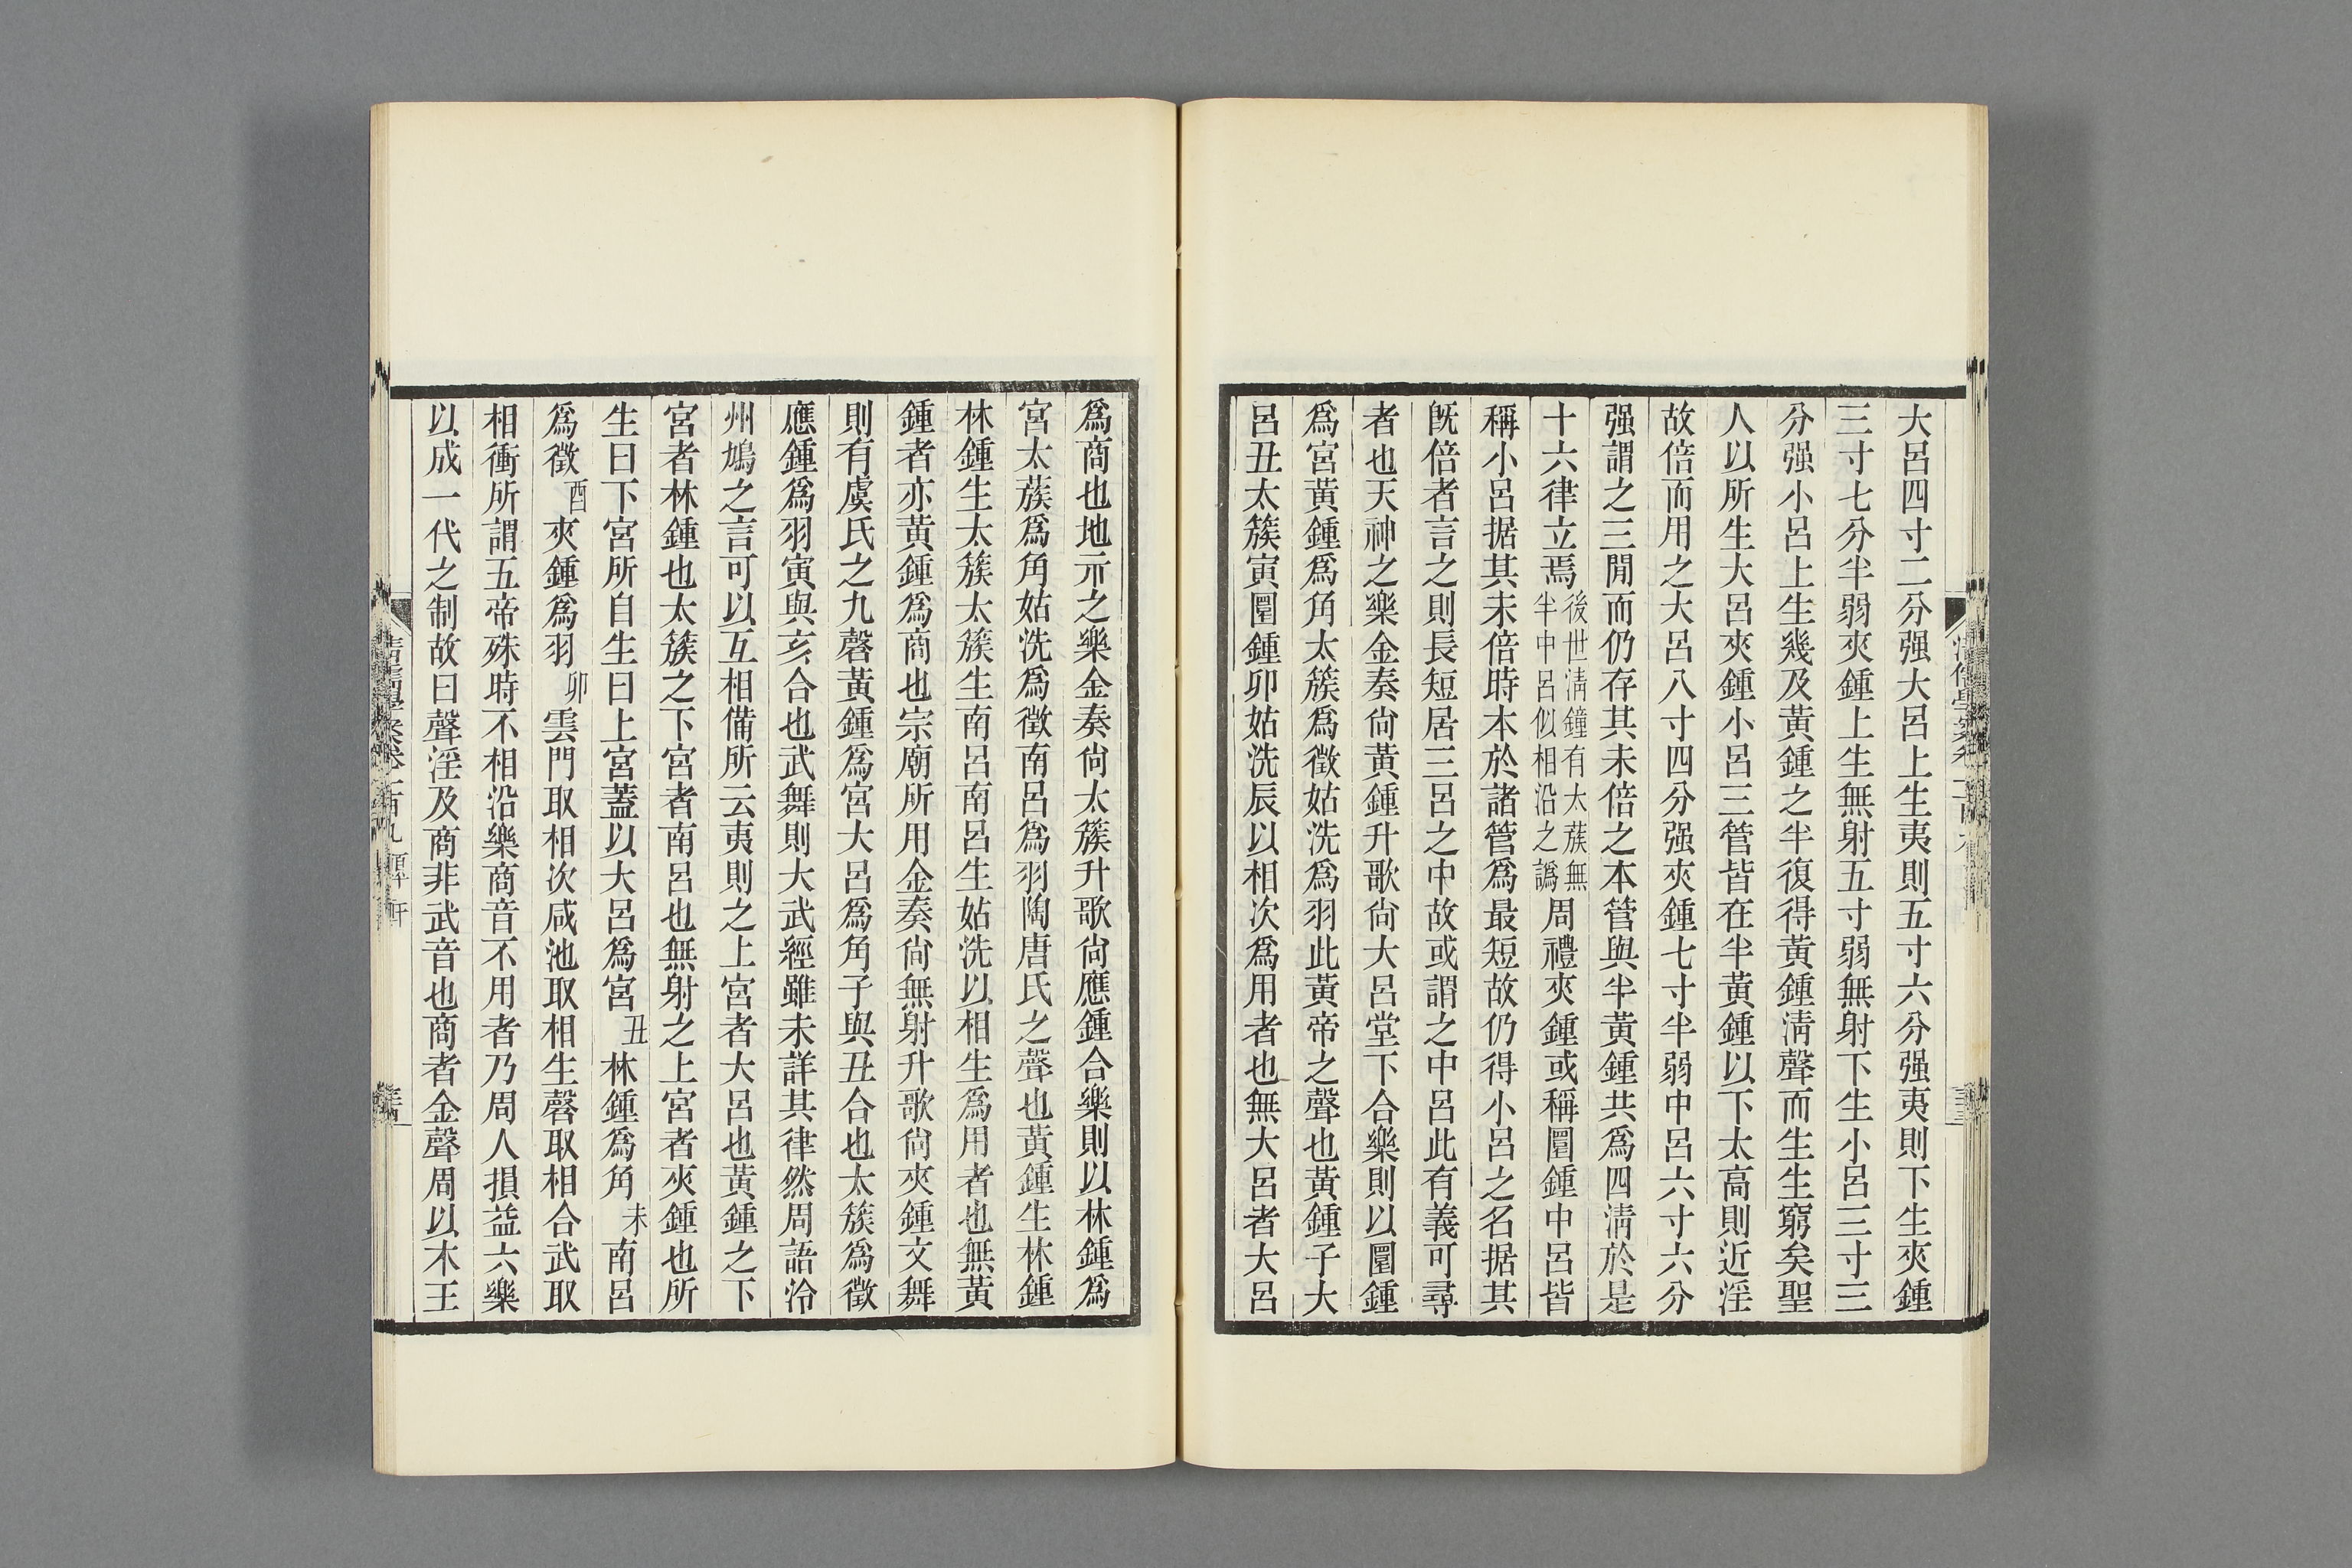 大呂四寸二分强大呂上生夷則五寸六分强夷則下生夾鍾
三寸七分半弱夾鍾上生無射五寸弱無射下生小呂三寸三
分强小呂上生幾及黃鍾之半復得黃鍾淸聲而生生窮矣聖
人以所生大呂夾鍾小呂三管皆在半黃鍾以下太高則近淫
故倍而用之大呂八寸四分强夾鍾七寸半弱中呂六寸六分
强謂之三閒而仍存其未倍之本管與半黃鍾共爲四淸於是
十六律立焉後世淸鐘有太蔟無半中呂似相沿之譌周禮夾鍾或稱圜鍾中呂皆
稱小呂据其未倍時本於諸管爲最短故仍得小呂之名据其
旣倍者言之則長短居三呂之中故或謂之中呂此有義可尋
者也天神之樂金奏尙黃鍾升歌尙大呂堂下合樂則以圜鍾
爲宮黃鍾爲角太簇爲徵姑洗爲羽此黃帝之聲也黃鍾子大
呂丑太簇寅圜鍾卯姑洗辰以相次爲用者也無大呂者大呂
爲商也地示之樂金奏尙太簇升歌尙應鍾合樂則以林鍾爲
宮太蔟爲角姑洗爲徵南呂爲羽陶唐氏之聲也黃鍾生林鍾
林鍾生太簇太簇生南呂南呂生姑洗以相生爲用者也無黃
鍾者亦黃鍾爲商也宗廟所用金奏尙無射升歌尙夾鍾文舞
則有虞氏之九磬黃鍾爲宮大呂爲角子與丑合也太簇爲徵
應鍾爲羽寅與亥合也武舞則大武經雖未詳其律然周語泠
州鳩之言可以互相備所云夷則之上宮者大呂也黃鍾之下
宮者林鍾也太簇之下宮者南呂也無射之上宮者夾鍾也所
生曰下宮所自生曰上宮蓋以大呂爲宮丑林鍾爲角未南呂
爲徵酉夾鍾爲羽卯雲門取相次咸池取相生磬取相合武取
相衝所謂五帝殊時不相沿樂商音不用者乃周人損益六樂
以成一代之制故曰聲淫及商非武音也商者金聲周以木王